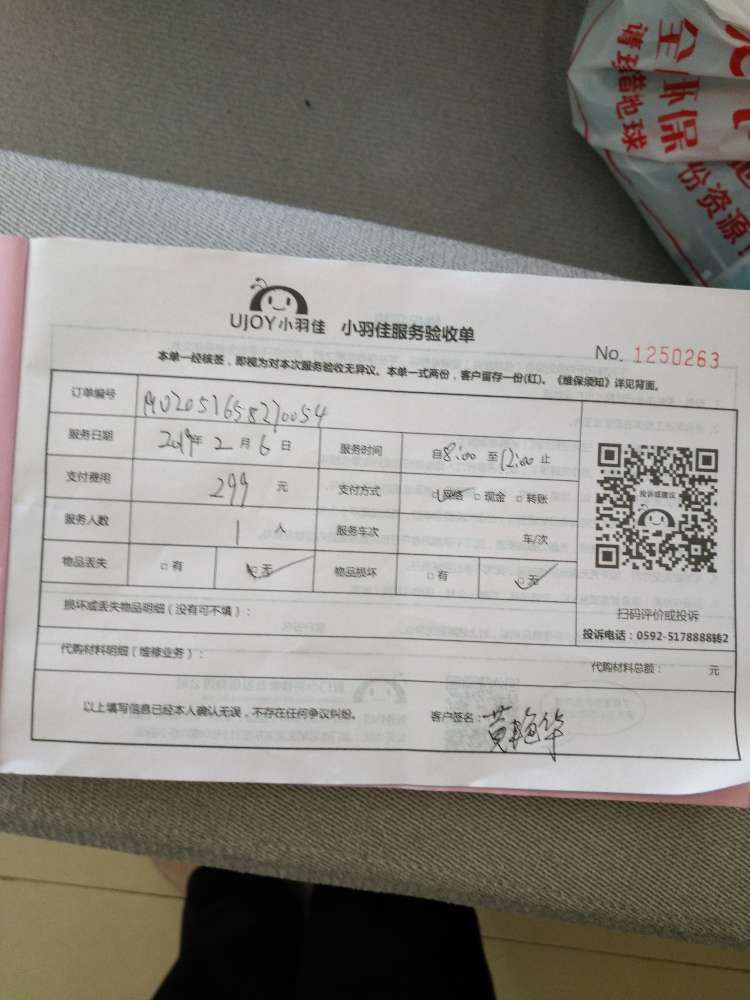 全 环保
请珍惜地球
份资源
UJOY小羽佳 小羽佳服务验收单
No. 1250263
本单一经核签，即视为对本次服务验收无异议。本单一式两份，客户留存一份(红)。《维保须知》详见背面。
订单编号 MU2051658270054
服务日期 2019年 2 月 6 日 服务时间 自8:00 至12:00 止
支付费用 299 元 支付方式 □网络 □现金 □转账
服务人数 1 人 服务车次 车/次
物品丢失 □有 □无 物品损坏 □有 □无
投诉或建议
扫码评价或投诉
投诉电话：0592-5178888转2
损坏或丢失物品明细（没有可不填）：
代购材料明细（维修业务）： 代购材料总额： 元
以上填写信息已经本人确认无误，不存在任何争议纠纷。 客户签名：黄艳华